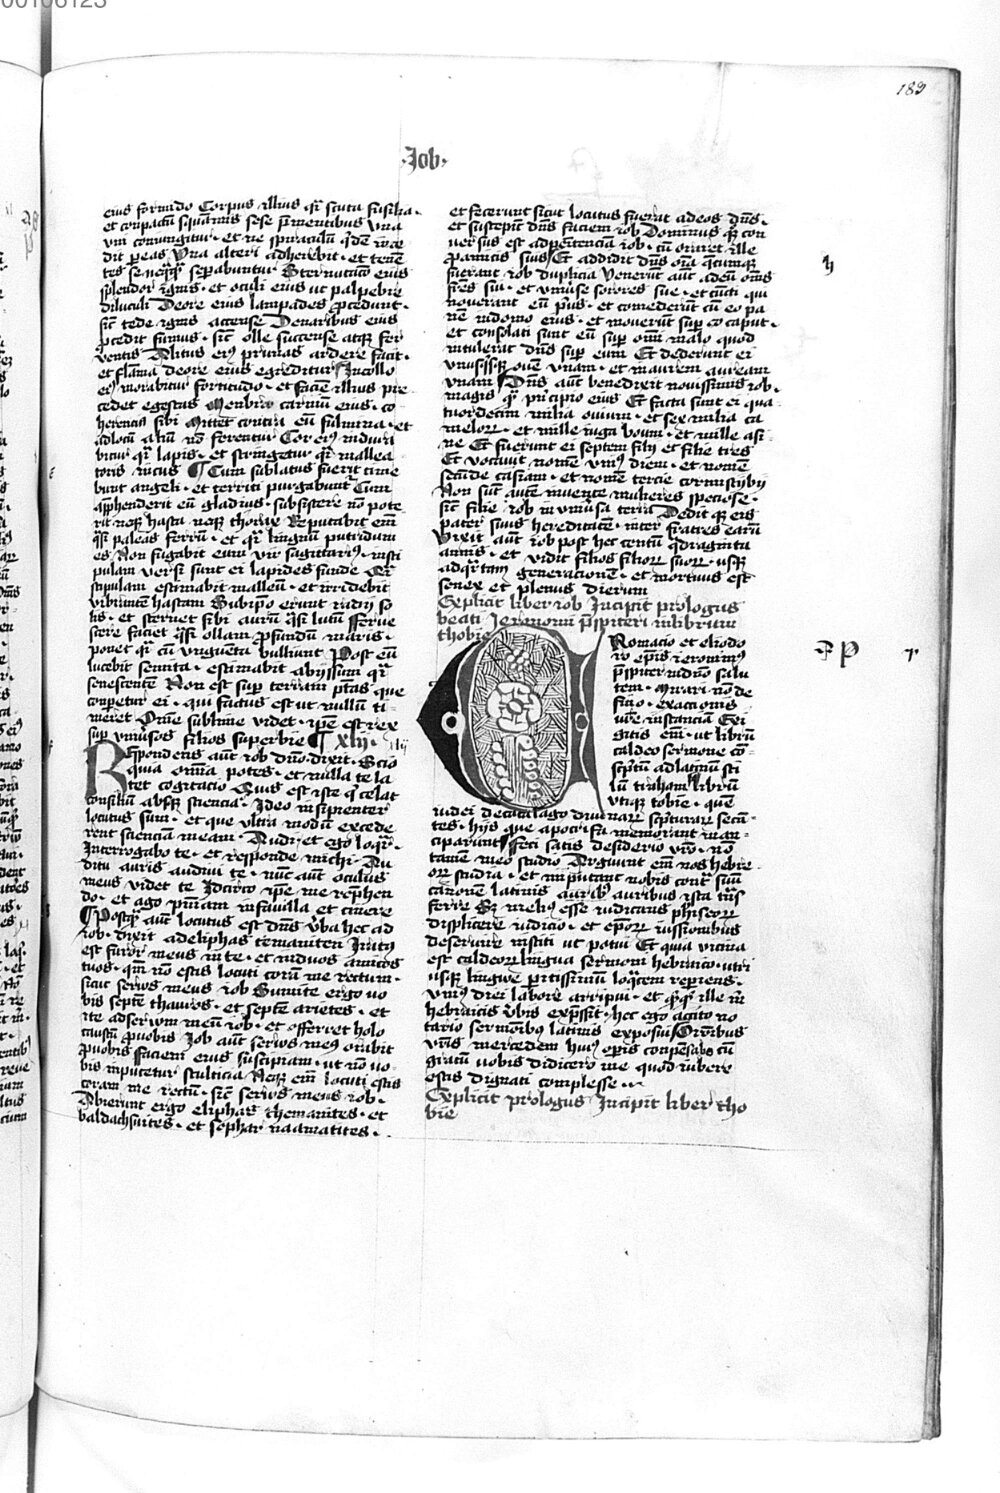 189
·Job·
eius formido Corpus illius qsi scuta fusilia·
et conpactu squamis sese prementibus Una
uni coniungitur· et ne spiraculu qidem ince
dit per eas Una alteri adherebit· et tenen
tes se neqq separabuntur Sternutacio eius
splendor ignis· et oculi eius ut palpebre
diluculi De ore eius lampades procedunt·
sic tede ignis accense De naribus eius
procedit fumus· sic olle succense atq fer
ventis Alitus eius prunas ardere facit·
et flama de ore eius egreditur In collo
eius morabitur fortitudo· et faciem illius pre
cedet egestas Membra carnium eius· co
herencia sibi Mittet contra eu fulmina· et
ad locu aliu no ferentur Cor eius indura
bitur qsi lapis· et stringetur qsi mallea
toris incus Cum sublatus fuerit time
bunt angeli· et territi purgabunt Cum
apphenderit eu gladius· subsistere no pote
rit neq hasta neq thorax Reputabit em
qsi paleas ferru· et qsi lignum putridum
es Non fugabit eum vir sagittarius· in sti
pulam versi sunt ei lapides funde Qsi
stipulam estimabit malleu· et irridebit
vibrantem hastam Sub ipso erunt radij so
lis· et sternet sibi auru qsi lutu Ferve
scere faciet qsi ollam profundu maris·
ponet qsi cu unguenta bulliunt Post eu
lucebit semita· estimabit abyssum qsi
senescentem Non est sup terram ptas que
conpetur ei· qui factus est ut nullu ti
meret Ome sublime videt· ipe est rex
sup universos filios superbie xlij·
Respondens aut iob dno dixit· Scio
quia omia potes· et nulla te la
tet cogitacio Quis est iste q celat
consiliu absq sciencia· Ideo insipienter
locutus sum· et que ultra modu excede
rent scienciam meam· Audi et ego loqr·
Interrogabo te· et responde michi· Au
ditu auris audivi te· nuc aut oculus
meus videt te Idcirco ipe me rephen
do· et ago pniam in favilla et cinere
Postq aut locutus est dns vba hec ad
iob· dixit ad eliphas temaniten Iratus
est furor meus in te· et in duos amicos
tuos· qm no estis locuti cora me rectum·
sicut servus meus iob Sumite ergo vo
bis septe thauros· et septe arietes· et
ite ad servum meu iob· et offerret holo
caustu p vobis Iob aut servus meus orabit
p vobis faciem eius suscipiam· ut no vo
bis inputetur stulticia Neq em locuti estis
coram me rectu· sic servus meus iob·
Abierunt ergo eliphas themanites· et
baldach suites· et sophar naamatites·
et fecerunt sicut locutus fuerat ad eos dns·
et suscepit dns faciem iob Dominus q con
versus est ad penitenciam iob· cu oraret ille
p amicis suis Et addidit dns oia qcumq
fuerant iob duplicia Venerut aut ad eu oms
fres sui· et universe sorores sue· et cuncti qui
noverant eu pus· et comederut cu eo pa
ne in domo eius· et moverut sup eo caput·
et consolati sunt eu sup omi malo quod
intulerat dns sup eum Et dederunt ei
unusqsq ove unam· et inaurem auream
unam Dns aut benedixit novissimis iob·
magis q pncipio eius Et facta sunt ei qua
tuordecim milia ovium· et sex milia ca
melor· et mille iuga boum· et mille asi
ne Et fuerunt ei septem filij et filie tres
Et vocavit nome unius diem· et nome
secude casiam· et nome tercie cornustibij
Non sut aute invente mulieres speciose·
sic filie iob in univsa terra Dedit q eis
pater suus hereditate· inter fratres earu
Vixit aut iob post hec centu qdraginta
annis· et vidit filios filior suor· usq
ad qrtam generacione· et mortuus est
senex et plenus dierum
Explicit liber iob Incipit prologus
beati Ieronimi pspiteri in librum
thobie
Romacio et eliodo
ro epis ieronimus
pspiter in dno salu
tem· Mirari no de
sino· exactionis
vre instanciam Exi
gitis em· ut libru
caldeo sermone co
sptu ad latinu sti
lu traham libru
utiq tobie· que
iudei de catalago divinar scpturar secan
tes· hijs que apocrifa memorant man
ciparunt Feci satis desiderio vro· no
tamen meo studio Arguunt em nos hebre
or studia· et inputant nobis cont suu
canone latinis aurib auribus ista tns
ferre Sed melius esse iudicans phiseor
displicere iudicio· et epor iussionibus
deservire institi ut potui Et quia vicina
est caldeor lingua sermoni hebraico· utri
usq lingwe ptissimu loqcem repiens·
unius diei labore arripui· et qcqd ille m
hebraicis vbis expssit· hec ego accito no
tario sermonibus latinis exposui Oronibus
vris mercedem huius opis conpensabo cu
gratu vobis didicero me quod iubere
estis dignati complesse
Explicit prologus Incipit liber tho
bie